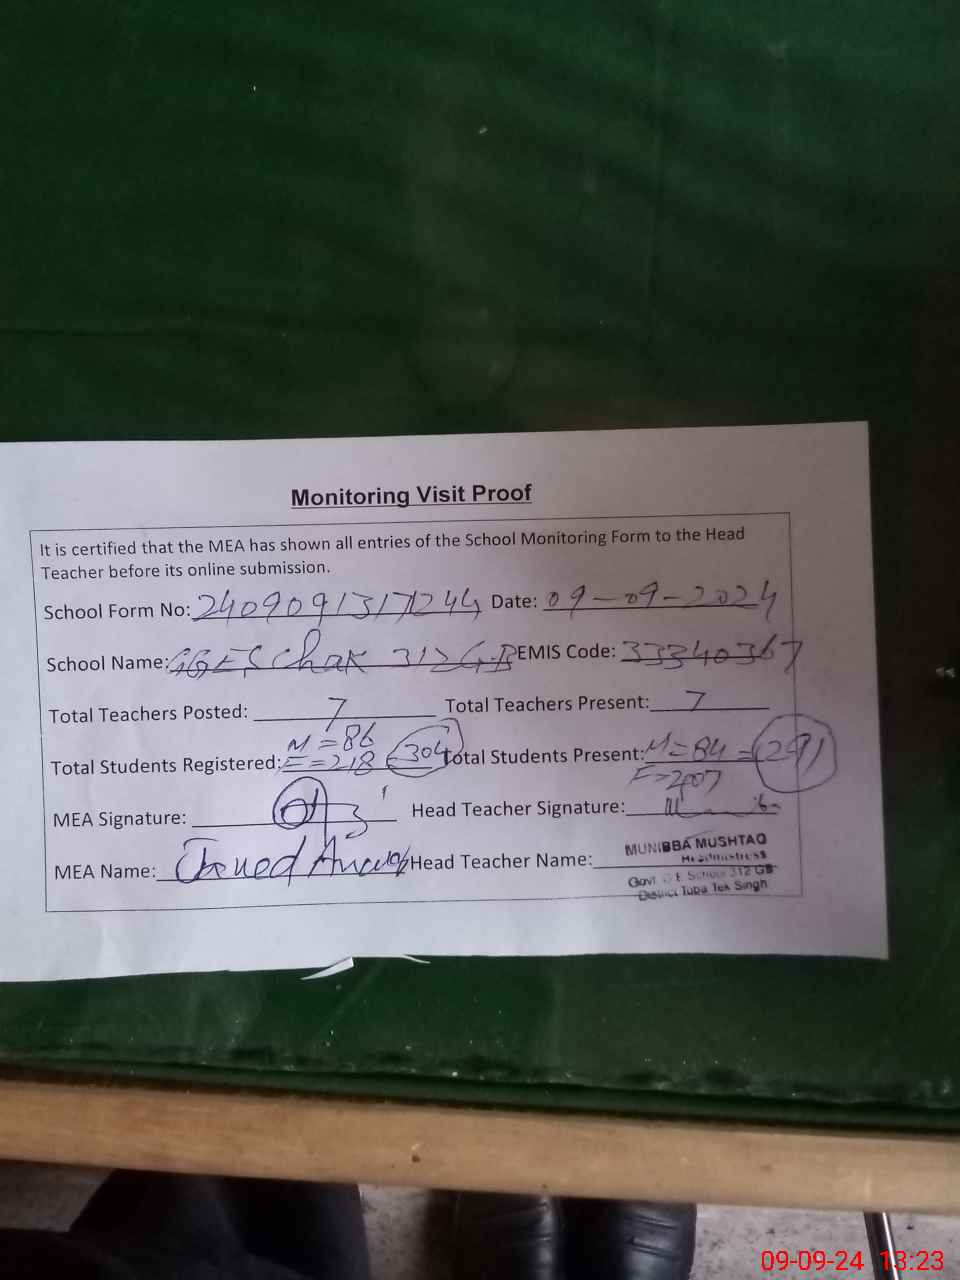 Monitoring Visit Proof
It is certified that the MEA has shown all entries of the School Monitoring Form to the Head
Teacher before its online submission.
School Form No: 2409091317244 Date: 09-09-2024
School Name: GGES Chak 312 G.B EMIS Code: 33340367
Total Teachers Posted: 7 Total Teachers Present: 7
M=86 M=84
Total Students Registered: F=218 304 Total Students Present: = 291
F=207
MEA Signature: Head Teacher Signature:
MEA Name: Head Teacher Name: MUNIBBA MUSHTAQ
Headmistress
Govt G E School 312 GB
District Toba Tek Singh
09-09-24 13:23